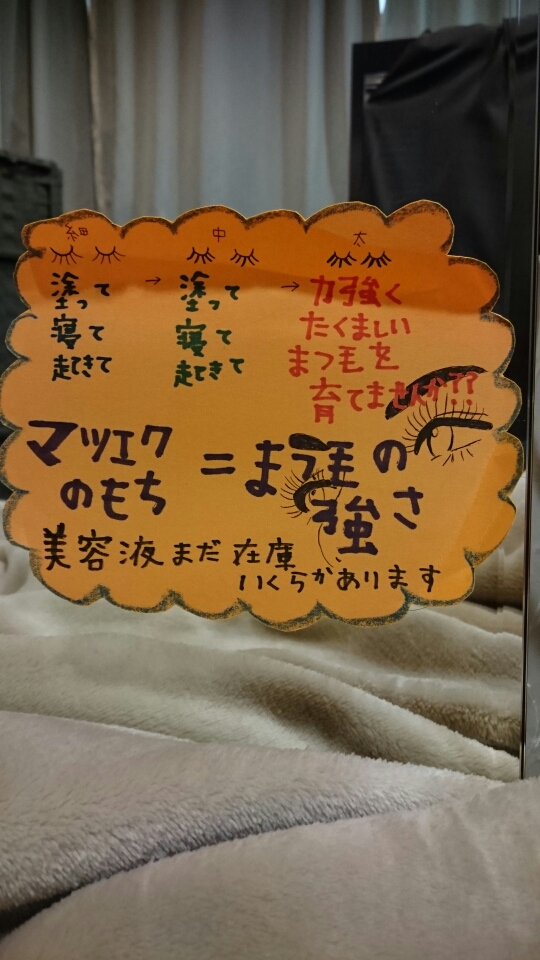 細 中 太
塗って → 塗って → 力強く
寝て 寝て たくましい
起きて 起きて まつ毛を
育てませんか??
マツエク
のもち = まつ毛の
強さ
美容液まだ在庫
いくらかあります